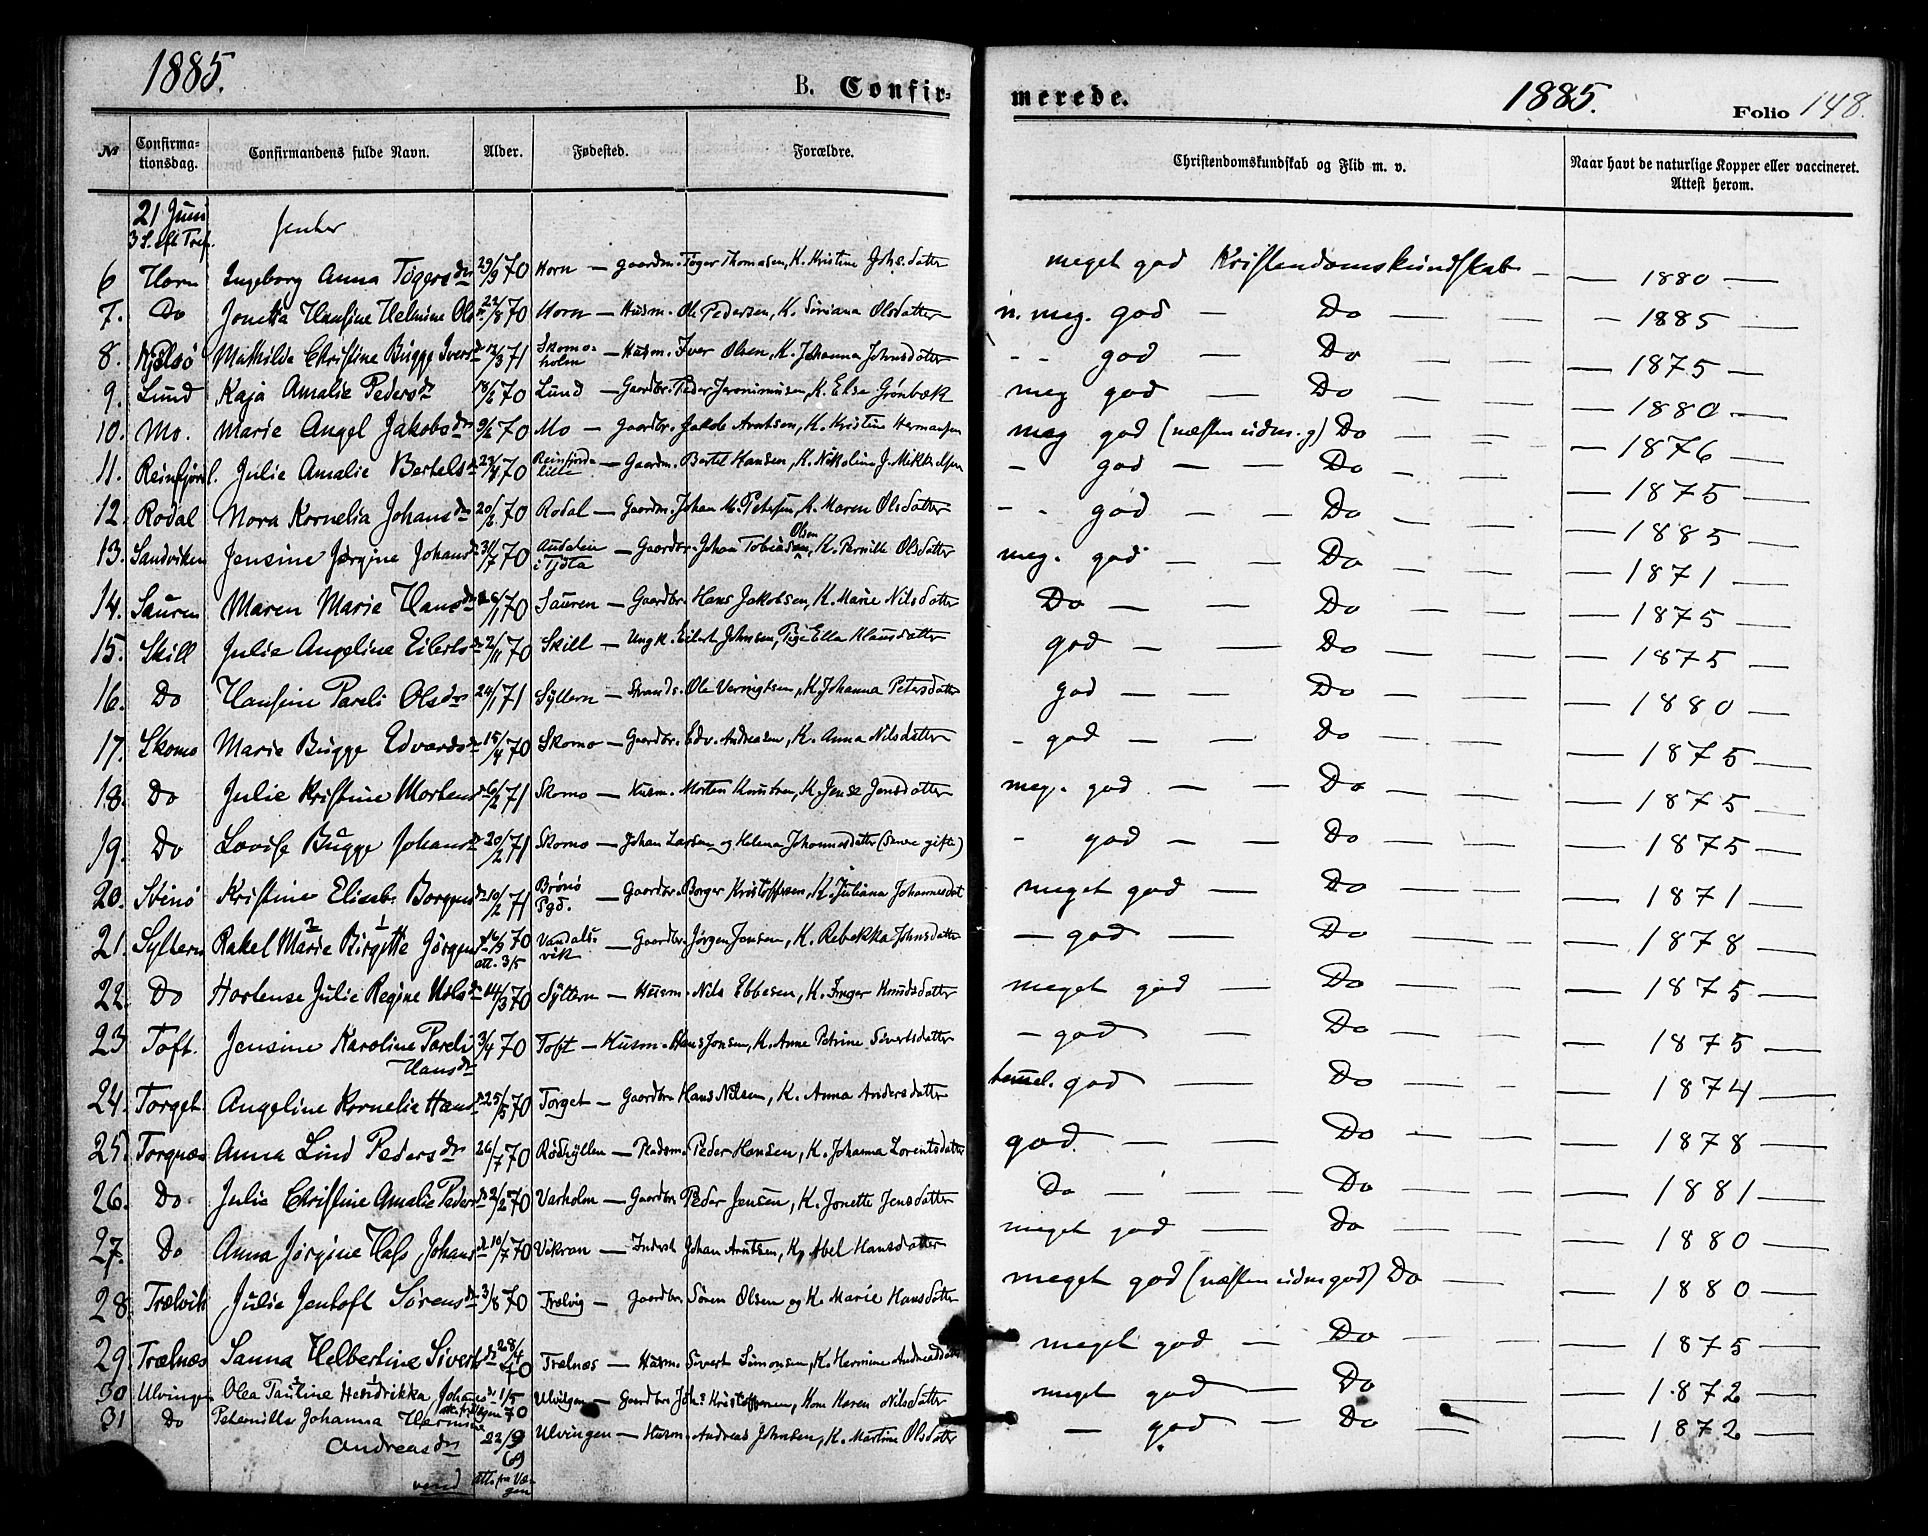 1885.
B. Confir-
merede.
1885.
Folio 148.
№ Confirmationsdag. Confirmandens fulde Navn. Alder. Fødested. Forældre. Christendomskundskab og Flid m. v. Naar havt de naturlige Kopper eller vaccineret. Attest herom.
21 Juni
3 S. eft Tref. Jenter
6 Horn Ingeborg Anna Tøgersdr 29/9 70 Horn — Gaardm. Tøger Thomasen, K. Kristine Johs.datter meget god Kristendomskundskab — 1880 —
7. Do Jonetta Hansine Helmine Ols dr 22/8 70 Horn — Husm. Ole Pedersen, K. Siriana Olsdatter n. meg. god — Do — 1885 —
8. Njelsö Mathilde Christine Bugge Ivers dr 12/3 71 Skomoholm — Husm. Iver Olsen, K. Johanna Johnsdatter - - god — Do — 1875 —
9. Lund Kaja Amalie Pedersdr 18/2 70 Lund — Gaardbr. Peder Jeronimusen, K. Elsa Grönbæk meg god — Do — 1880 —
10. Mo. Marie Angel Jakobsdr 9/2 70 Mo — Gaardbr. Jakob Arntsen, K. Kristine Hermansen meg god (næsten udm. g) Do — 1876 —
11. Reinfjord. Julie Amalie Bertelsdr 23/4 70 Reinfjord lille — Gaardm. Bertel Hansen, K. Nikoline J. Mikkelsen - god — Do — 1875 —
12. Rodal Nora Kornelia Johansdr 20/6 70 Rodal — Gaardm. Johan M. Petersen, K. Maren Olsdatter - - god — Do — 1885 —
13. Sandviken Jensine Jørgine Johansdr 31/7 70 i Tjøta — Gaardbr. Johan Tobias Olsen, K. Pernille Olsdatter meg. god — Do — 1871 —
14. Sauren Maren Marie Hansdr 26/1 70 Sauren — Gaardbr. Hans Jakobsen, K. Marie Nilsdatter Do — Do — 1875 —
15. Skill Julie Angeline Eilertsdr 2/11 70 Skill — Ungk. Eilert Johnsen, Pige Ella Klausdatter god — Do — 1875 —
16. Do Hansine Pareli Olsdr 24/1 71 Syltern — Strands. Ole K. Johanna Petersdatter god — Do — 1880 —
17. Skomo Marie Bugge Edvardsdr 15/4 70 Skomo — Gaardbr. Edv. Andreasen, K. Anna Nilsdatter - god — Do — 1875 —
18. Do Julie Kristine Mortensdr 6/2 71 Skomo — Husm. Morten Knutsen, K. Jense Jensdatter meg. god — Do — 1875 —
19. Do Lovise Bugge Johansdr 20/2 71 Skomo — Johan Larsen og Helena Johannesdatter (senere gifte) - god — Do — 1875 —
20. Stinö Kristine Elisab. Borgersdr 10/2 71 Brönö Pgd. — Gaardbr. Borger Kristoffersen, K. Juliana Johannesdat meget god — Do — 1871 —
21. Syltern Rakel Marie 2 Birgitte 1 Jörgensdr 16/9 70 att. 3/5 Vandalsvik — Gaardbr. Jörgen Jensen, K. Rebekka Johnsdatter — god — Do — 1878 —
22. Do Hortense Julie Regine Nilsdr 14/3 70 Syltern — Husm. Nils Ebbesen, K. Inger Knudsdatter meget god — Do — 1875 —
23 Toft. Jensine Karoline Pareli Hansdr 3/4 70 Toft — Husm. Hans Jonsen, K. Anne Petrine Sivertsdatter - god — Do — 1875 —
24. Torget Angeline Kornelie Hansdr 25/5 70 Torget — Gaardbr. Hans Nilsen, K. Anna Andersdatter temmel. god — Do — 1874 —
25. Torgnæs Anna Lind Pedersdr 26/7 70 Rödhyllen — Pladsm. Peder Hansen, K. Johanna Lorentsdatter god. — Do — 1878 —
26. Do. Julie Christine Amalie Pedersdr 2/2 70 Varholm — Gaardbr. Peder Jensen, K. Jonette Jensdatter Do — Do — 1881 —
27. Do Anna Jørgine Hass Johansdr 10/7 70 Vikran — Inderst Johan Arntsen, K. Abel Hansdatter meget god — Do — 1880 —
28. Trælvik Julie Jentoft Sørensdr 3/8 70 Trælvig — Gaardbr. Sören Olsen og K. Marie Hansdatter meget god (næsten udm god) Do — 1880 —
29. Trælnæs Sanna Helbertine Sivertsdr 28/4 70 Trælnæs — Husm. Sivert Simonsen, K. Hermine Andreasdatter meget god — Do — 1875 —
30 Ulvingen Olea Pauline Hendrikka Johans dr 1/5 70 Ulvingen — Gaardbr. Joh.s Kristoffersen, Kone Karen Nilsdatter meget god — Do — 1872 —
31 Do Petronille Johanna Hermine Andreasdr 22/9 69 Ulvingen — Husm. Andreas Johnsen, K. Martine Olsdatter — god — Do — 1872 —
vend Atts fra Vægen